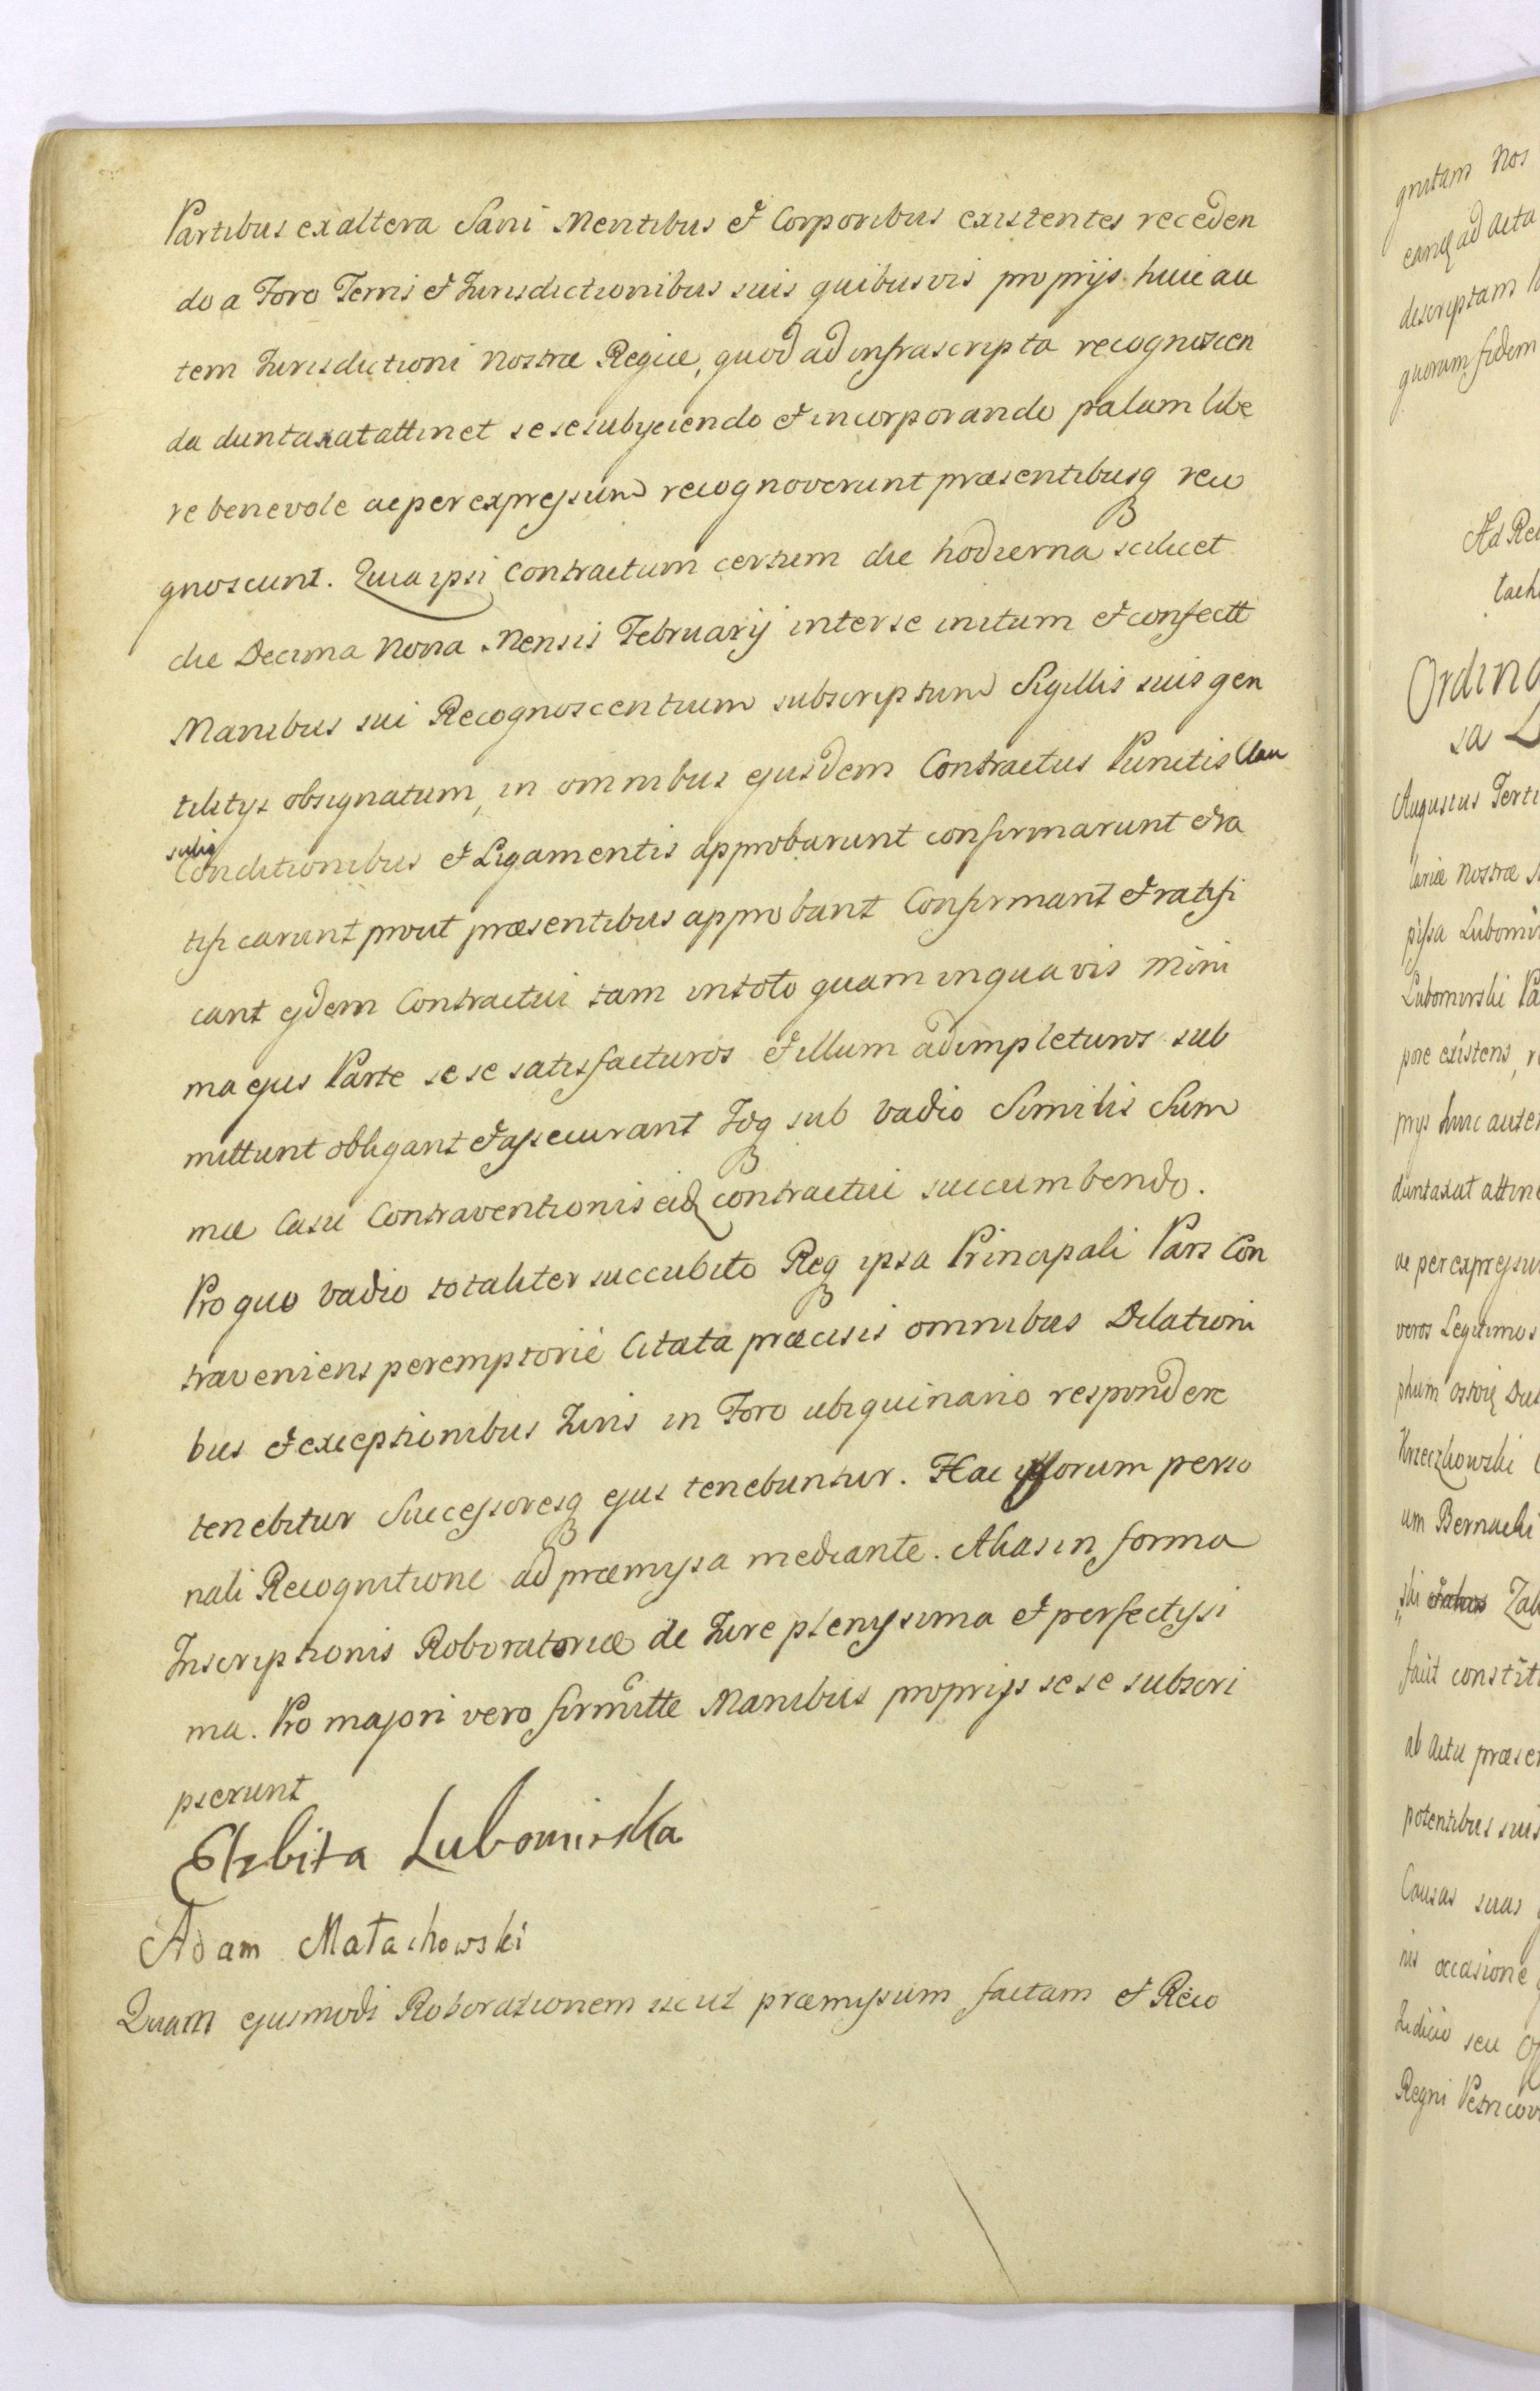 Partibus ex altera Sani Mentibus et Corporibus existentes receden
do a Foro Terris et Jurisdictionibus suis quibusvis proprijs huic au
tem Jurisdictioni Nostræ Regiæ, quod ad infrascripta recognoscen
da duntaxat attinet sese subijciendo et incorporando palam libe
re benevole ac per expressum recognoverunt præsentibusq reco
gnoscunt. Quia ipsi Contractum certum die hodierna scilicet
die Decima Nona Mensis Februarij inter se initum et confectt
Manibus sui Recognoscentium subscriptum Sigillis suis gen
tilitijs obsignatum, in omnibus ejusdem Contractus Punctis Clau
sulis Conditionibus et Ligamentis approbarunt confirmarunt et ra
tificarunt prout præsentibus approbant Confirmant et ratifi
cant ejdem Contractui tam in toto quam in quavis mini
ma ejus Parte sese satisfacturos et illum adimpleturos sub
mittunt obligant et assecurant Idq sub Vadio Similis Sum
mæ Casu Contraventionis eidq contractui succumbendo.
Pro quo Vadio totaliter succubito Req ipsa Principali Pars Con
traveniens peremptorie Citata præcisis omnibus Dilationi
bus et exceptionibus Juris in Foro ubiquinario respondere
tenebitur Successoresq ejus tenebuntur. Hac ipsorum perso
nali Recognitione ad præmissa mediante. Alias in forma
Inscriptionis Roboratoriæ de Jure plenissima et perfectissi
ma. Pro majori vero firmitte Manibus proprijs sese subscri
pserunt
Elzbita Lubomirska
Adam Małachowski
Quam ejusmodi Roborationem sicut præmissum factam et Reco
gnitam Nos
eamq ad Acta
descriptam
quorum fidem
Ad
Ordina
sa
Augustus Terti
lariæ Nostræ
pissa Lubomir
Lubomirski
pore existens
prijs huic autem
duntaxat attine
ac per expressum
veros Legitimos
phum
Krzeczkowski
um Bernacki
ski
fecit constit
ab Actu præsen
potentibus suis
Causas suas
nis occasione
Judicio seu
Regni Petricov